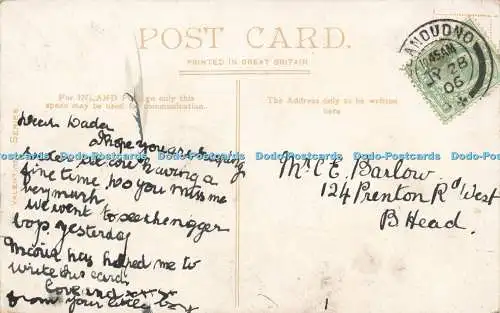 POST CARD.
PRINTED IN GREAT BRITAIN
For INLAND Postage only this
space may be used for communication.
The Address only to be written
here
VALENTINE'S SERIES
LLANDUDNO
10 45AM
JY 28
06
Dear Dada
I hope you are
we are having a
fine time, do you miss me
very much
we went to see the nigger
boys yesterday
Maria has helped me to
write this card
love and xxxx
from your little boy
Mr C E. Barlow.
124 Prenton Rd West
B Head.
1
www.Postcards.com